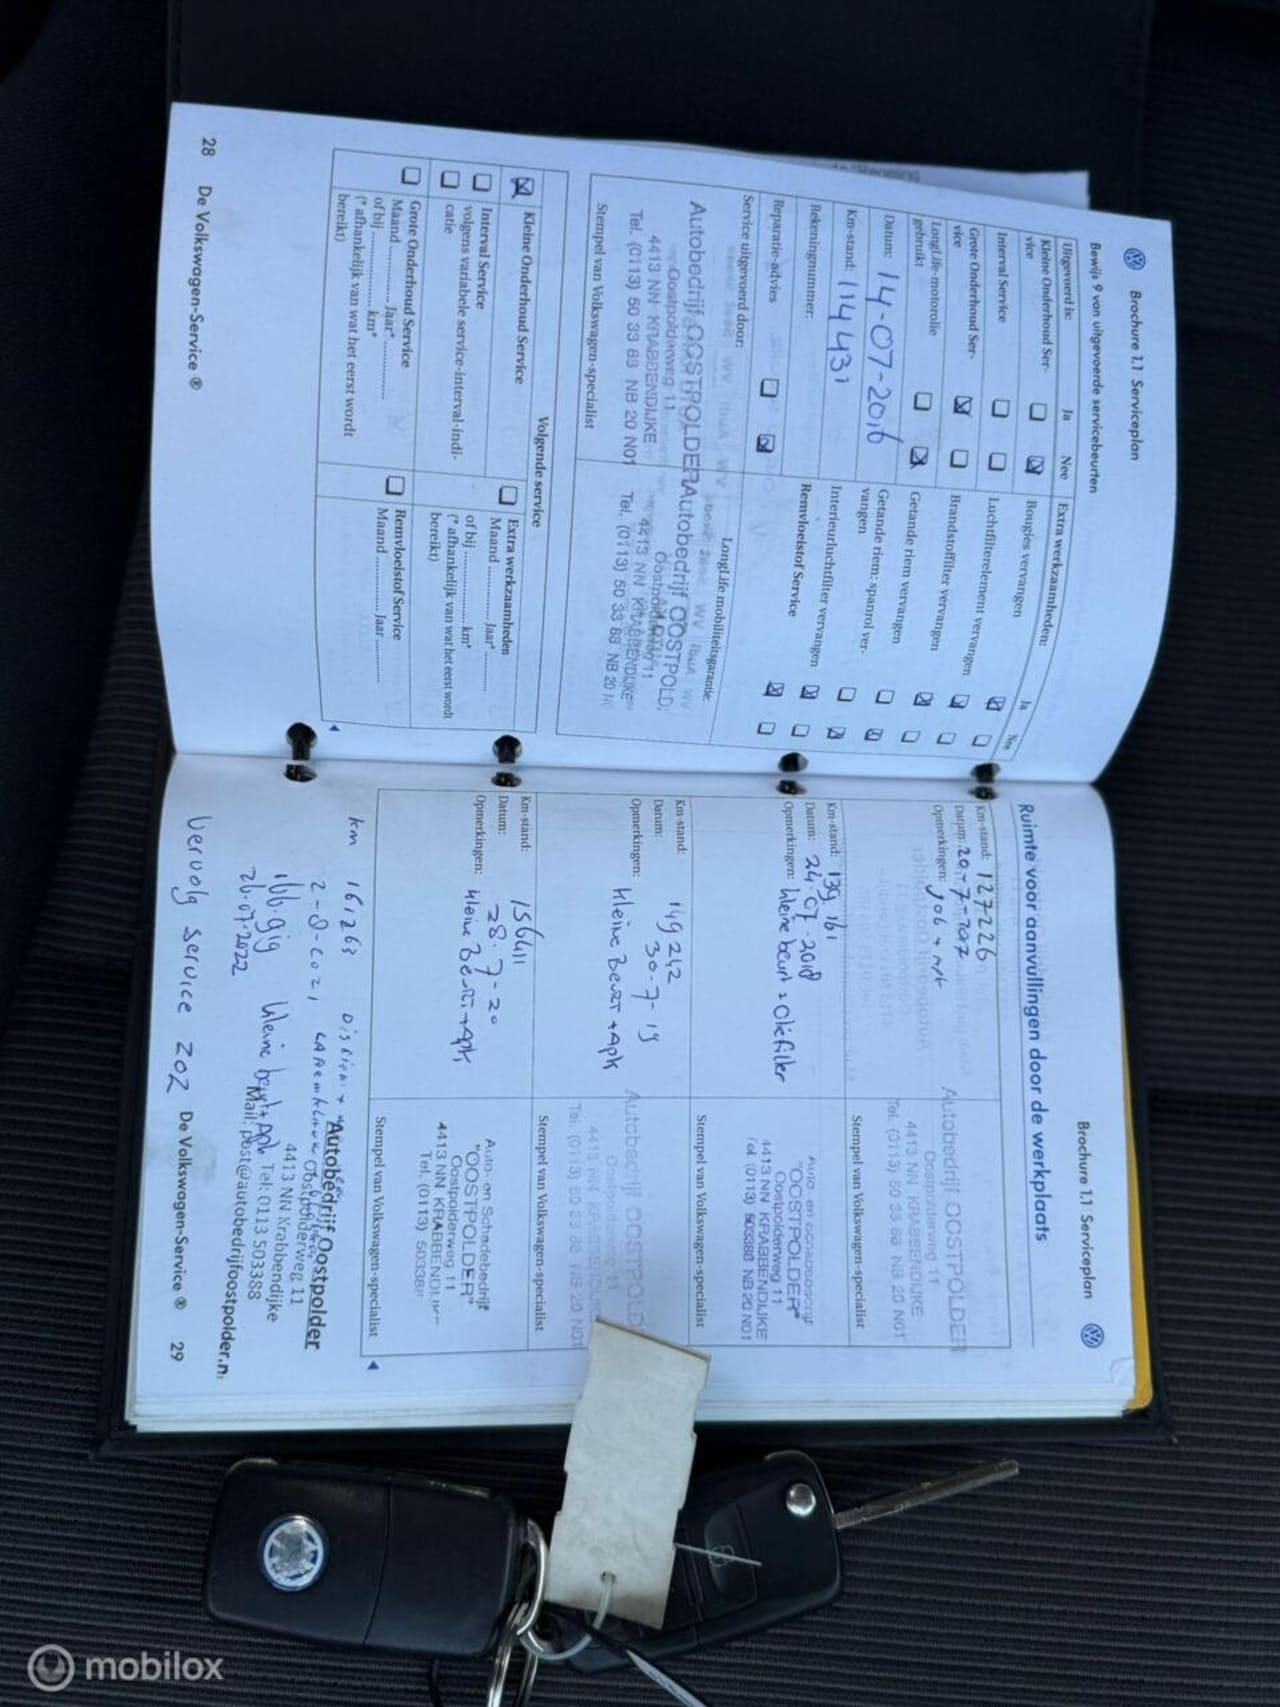 Brochure 1.1 Serviceplan
Bewijs 9 van uitgevoerde servicebeurten
Uitgevoerd is: Ja Nee
Kleine Onderhoud Ser-
vice
Interval Service
Grote Onderhoud Ser-
vice
LongLife-motorolie
gebruikt
Datum: 14-07-2016
Km-stand: 114431
Rekeningnummer:
Reparatie-advies
Extra werkzaamheden: Ja Nee
Bougies vervangen
Luchtfilterelement vervangen
Brandstoffilter vervangen
Getande riem vervangen
Getande riem: spanrol ver-
vangen
Interieurluchtfilter vervangen
Remvloeistof Service
LongLife mobiliteitsgarantie:
Service uitgevoerd door:
Autobedrijf OOSTPOLDER
Oostpolderweg 11
4413 NN KRABBENDIJKE
Tel. (0113) 50 33 88 NB 20 N01
Autobedrijf OOSTPOLD
Oostpolderweg 11
4413 NN KRABBENDIJKE
Tel. (0113) 50 33 88 NB 20 N
Stempel van Volkswagen-specialist
Volgende service
Kleine Onderhoud Service
Interval Service
volgens variabele service-interval-indi-
catie
Grote Onderhoud Service
Maand Jaar*
of bij km*
(* afhankelijk van wat het eerst wordt
bereikt)
Extra werkzaamheden
Maand Jaar*
of bij km*
(* afhankelijk van wat het eerst wordt
bereikt)
Remvloeistof Service
Maand Jaar
28 De Volkswagen-Service ®
Brochure 1.1 Serviceplan
Ruimte voor aanvullingen door de werkplaats
Km-stand: 127226
Datum: 20-7-2017
Opmerkingen:
Autobedrijf OOSTPOLDER
Oostpolderweg 11
4413 NN KRABBENDIJKE
Tel. (0113) 50 33 88 NB 20 N01
Stempel van Volkswagen-specialist
Km-stand: 139 161
Datum: 24-07-2018
Opmerkingen: kleine beurt + Oliefilter
"OOSTPOLDER"
Oostpolderweg 11
4413 NN KRABBENDIJKE
Tel. (0113) 503388 NB 20 N01
Stempel van Volkswagen-specialist
Km-stand: 149242
Datum: 30-7-19
Opmerkingen: kleine Beurt + Apk
Autobedrijf OOSTPOLD
Oostpolderweg 11
4413 NN KRABBENDIJKE
Tel. (0113) 50 33 88 NB 20 N01
Stempel van Volkswagen-specialist
Km-stand: 156411
Datum: 28-7-20
Opmerkingen: kleine Beurt + Apk
Auto- en Schadebedrijf
"OOSTPOLDER"
Oostpolderweg 11
4413 NN KRABBENDIJKE
Tel. (0113) 503388
Stempel van Volkswagen-specialist
km 161263
2-8-2021
166.919 kleine beurt + Apk
26-07-2022
Autobedrijf Oostpolder
Oostpolderweg 11
4413 NN Krabbendijke
Tel. 0113 503388
Mail: post@autobedrijfoostpolder.n
Vervolg service 202
De Volkswagen-Service ® 29
mobilox